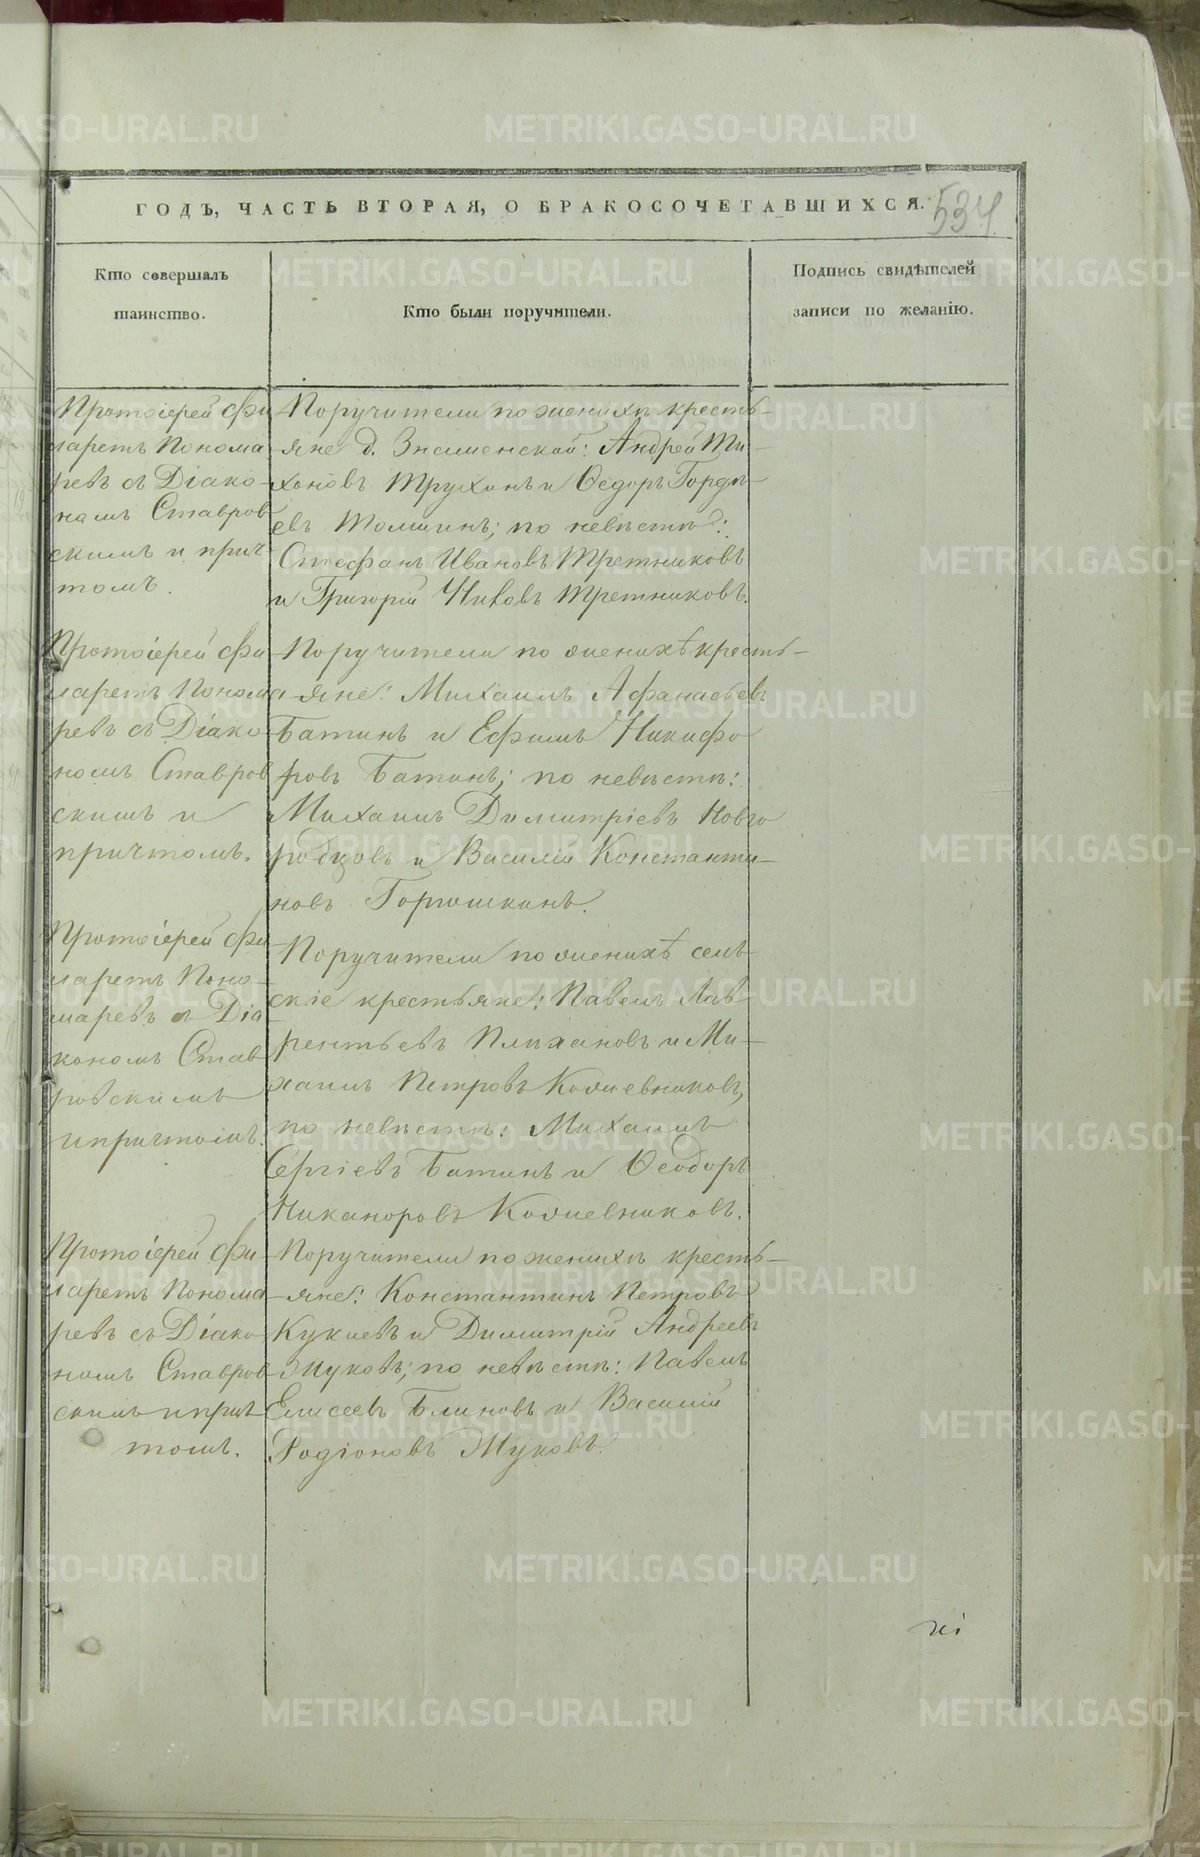 ГОДЪ, ЧАСТЬ ВТОРАЯ, О БРАКОСОЧЕТАВШИХСЯ.
534.
Кто совершалъ
таинство.
Кто были поручители.
Подпись свидѣтелей
записи по желанію.
Протоіерей Фи
ларетъ Понома
ревъ съ Діако-
номъ Ставров
скимъ и прич
томъ.
Поручители по женихѣ кресть-
яне д. Знаменской: Андрей Ти-
хоновъ Трухинъ и Ѳедоръ Гордѣ-
евъ Томшинъ; по невѣстѣ:
Стефанъ Ивановъ Третниковъ
и Григорій Третниковъ.
Протоіерей Фи
ларетъ Понома
ревъ съ Діако
номъ Ставров
скимъ и
причтомъ.
Поручители по женихѣ кресть-
яне: Михаилъ Афанасьевъ
Батинъ и Ефимъ Никифо
ровъ Батинъ; по невѣстѣ:
Михаилъ Димитріевъ Новго
родцовъ и Василій Константи-
новъ Горошкинъ.
Протоіерей Фи
ларетъ Поно-
маревъ съ Діа
кономъ Став
ровскимъ
и причтомъ.
Поручители по женихѣ сель-
скіе крестьяне: Павелъ Лав-
рентьевъ Плѣхановъ и Ми-
хаилъ Петровъ Кожевниковъ,
по невѣстѣ: Михаилъ
Сергіевъ Батинъ и Ѳеодоръ
Никаноровъ Кожевниковъ.
Протоіерей Фи-
ларетъ Понома
ревъ съ Діако
номъ Ставров
скимъ и прич
томъ.
Поручители по женихѣ кресть-
яне: Константинъ Петровъ
Кукаевъ и Димитрій Андреевъ
Жуковъ; по невѣстѣ: Павелъ
Елисеевъ Блиновъ и Василій
Родіоновъ Жуковъ.
METRIKI.GASO-URAL.RU